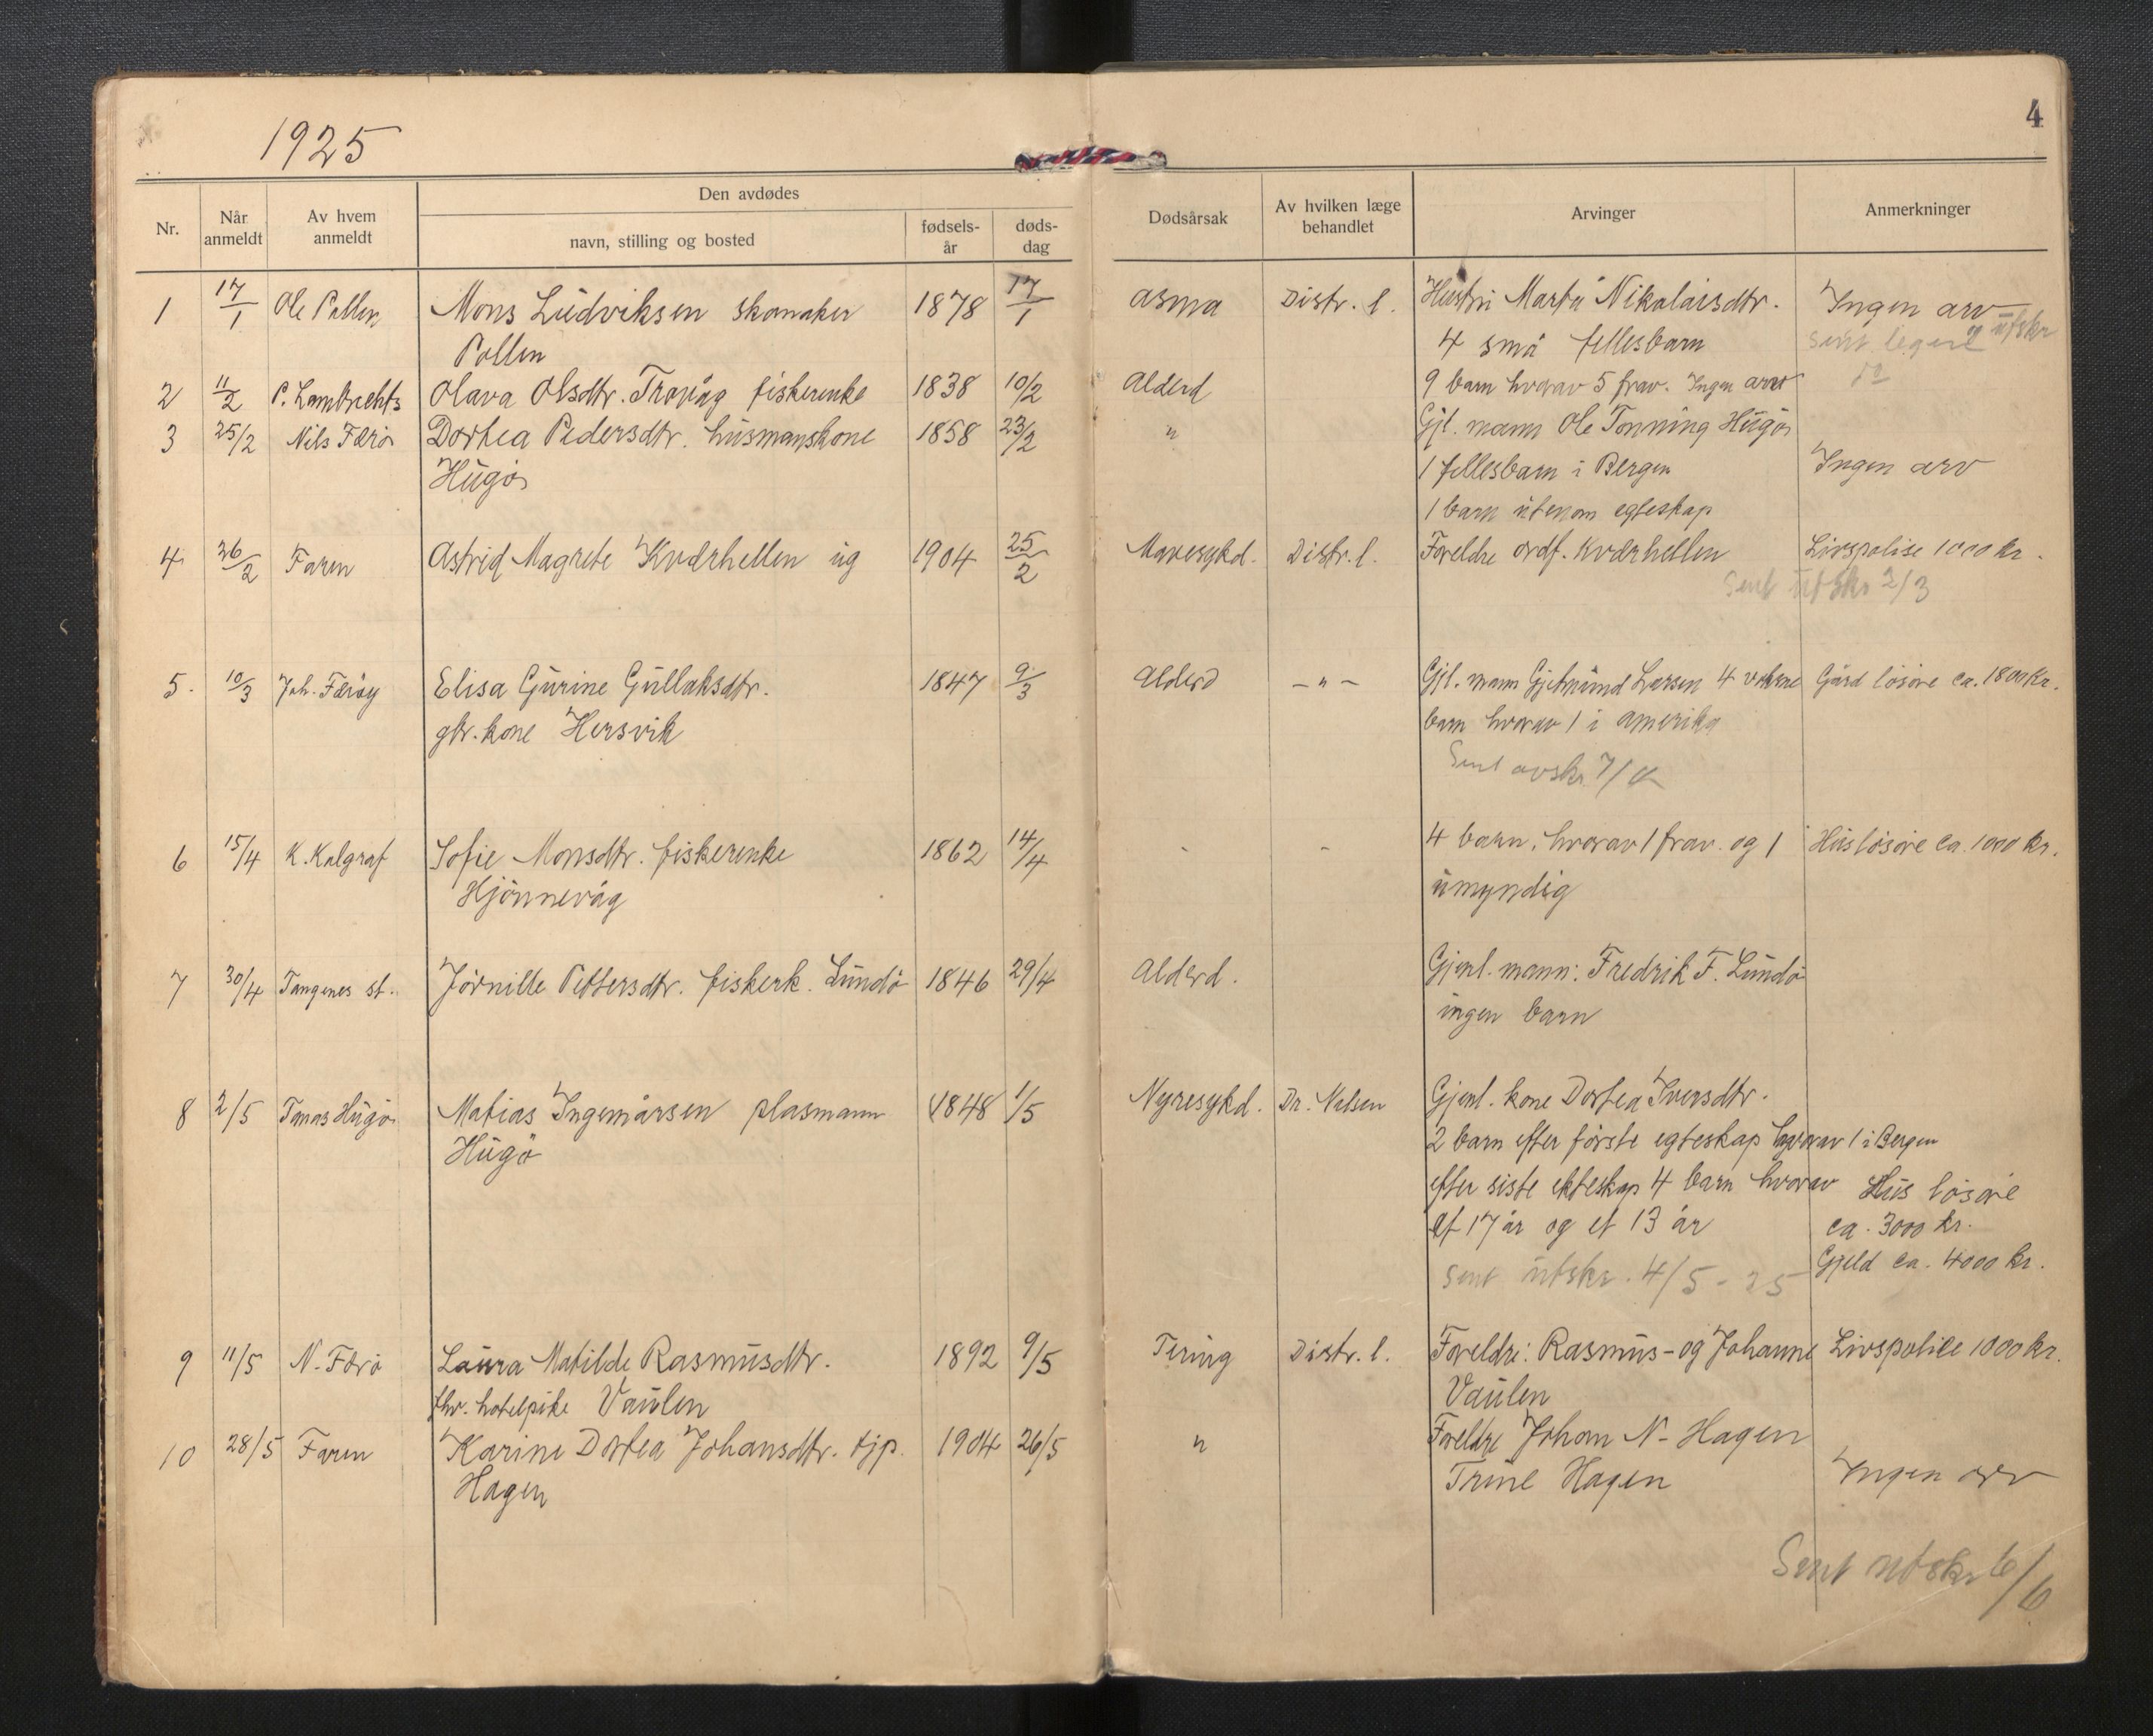 1925
4
Nr.
Når anmeldt
Av hvem anmeldt
Den avdødes
navn, stilling og bosted
fødsels-år
døds-dag
Dødsårsak
Av hvilken læge behandlet
Arvinger
Anmerkninger
1 17/1 Ole Pollen Mons Ludviksen skomaker 1878 17/1 Asma Distr. l. Hustru Marta Nikolaisdtr. Ingen arv
Pollen 4 små fellesbarn sent utskr
2 11/2 P. Lambrechts Olava Olsdtr. Trovåg fiskerenke 1838 10/2 Alderd 9 barn hvorav 5 frav. Ingen arv
3 25/2 Nils Færø Dortea Pedersdtr. husmanskone 1858 23/2 " Gjl. mann Ole Tonning Hugø
Hugø 1 fellesbarn i Bergen Ingen arv
1 barn utenom egteskap
4 26/2 Faren Astrid Magrete Kværhellen ug 1904 25/2 Mavesykd. Distr. l. Foreldre ordf. Kværhellen Livspolise 1000 kr.
Sent utskr 2/3
5. 10/3 Joh. Færøy Elisa Gurine Gullaksdtr. 1847 9/3 Alderd - " - Gjl. mann Gjetmund Larsen 4 voksne Gård løsøre ca. 1800 kr.
gbr. kone Hersvik barn hvorav 1 i Amerika
Sent avskr.
6 15/4 K. Kalgraf Sofie Monsdtr. fiskerenke 1862 14/4 - - 4 barn, hvorav 1 frav. og 1 Hus løsøre ca. 1000 kr.
Hjønnevåg umyndig
7 30/4 Tangenes st. Jørnille Pettersdtr. fiskerk. Lundø 1846 29/4 Alderd. Gjenl. mann: Fredrik F. Lundø
ingen barn
8 2/5 Tomas Hugø Matias Ingemårsen plasmann 1848 1/5 Nyresykd. Dr. Nelsen Gjenl. kone Dortea Iversdtr.
Hugø 2 barn efter første egteskap hvorav 1 i Bergen
efter siste ekteskap 4 barn hvorav Hus løsøre
et 17 år og et 13 år ca. 3000 kr.
Sent utskr. 4/5 - 25 Gjeld ca. 4000 kr.
9 11/5 N. Færø Laura Matilde Rasmusdtr. 1892 9/5 Tæring Distr. l. Foreldre: Rasmus - og Johanne Livspolice 1000 kr.
fhv. hotelpike Vaulen Vaulen
10 28/5 Faren Karine Dortea Johansdtr. tjp. 1904 26/5 " Foreldre Johan N. Hagen
Hagen Trine Hagen Ingen arv
Sent utskr 6/6